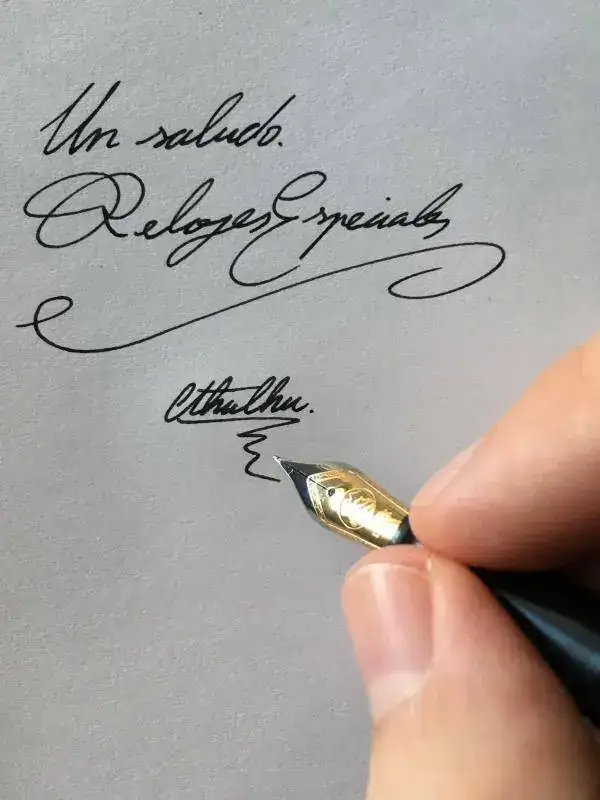 Un saludo.
Relojes Especiales
Cthulhu.